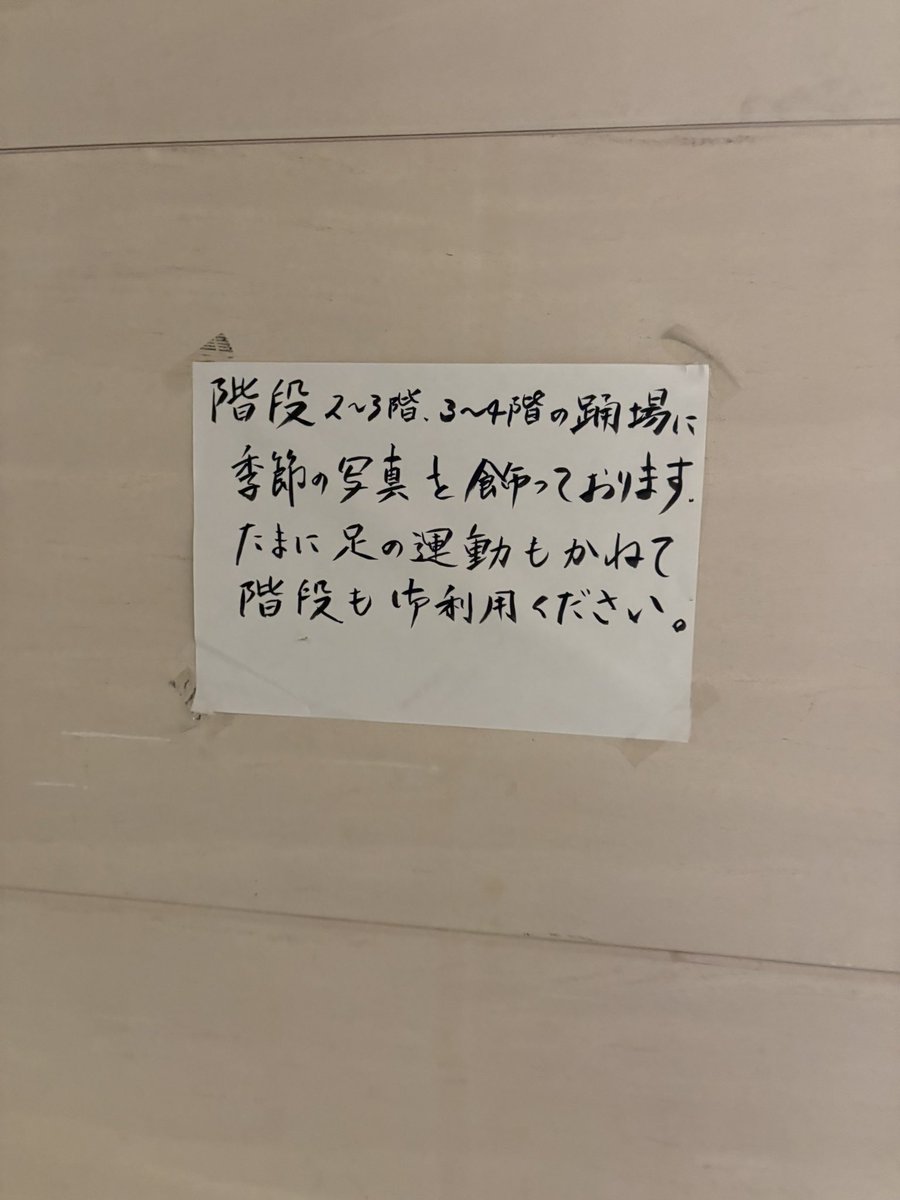 階段 2〜3階、3〜4階の踊場に
季節の写真を飾っております。
たまに足の運動もかねて
階段も御利用ください。